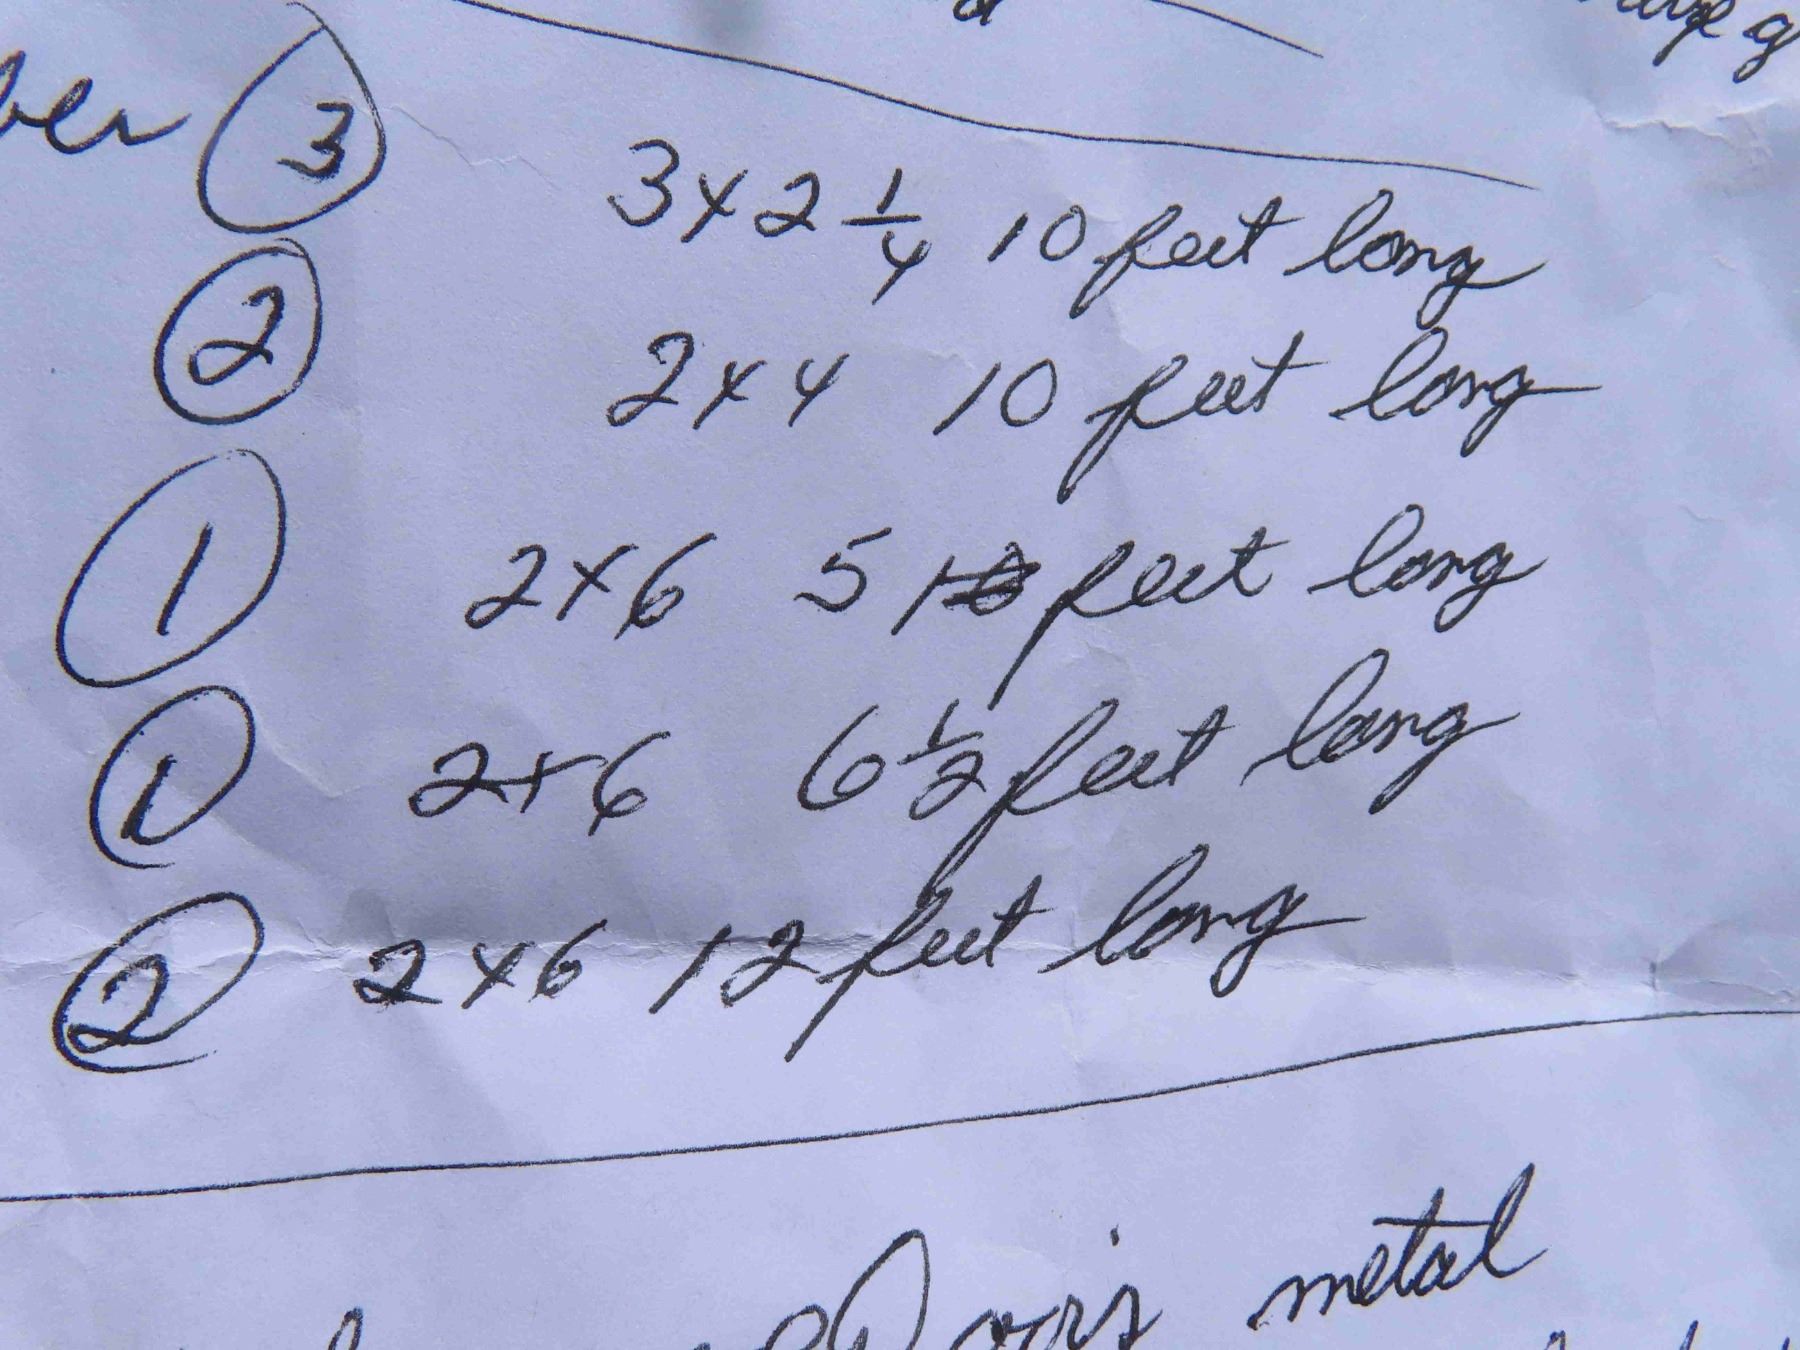 3 3 x 2 1/4 10 feet long
2 2 x 4 10 feet long
1 2 x 6 5 feet long
1 2 x 6 6 1/2 feet long
2 2 x 6 12 feet long
metal